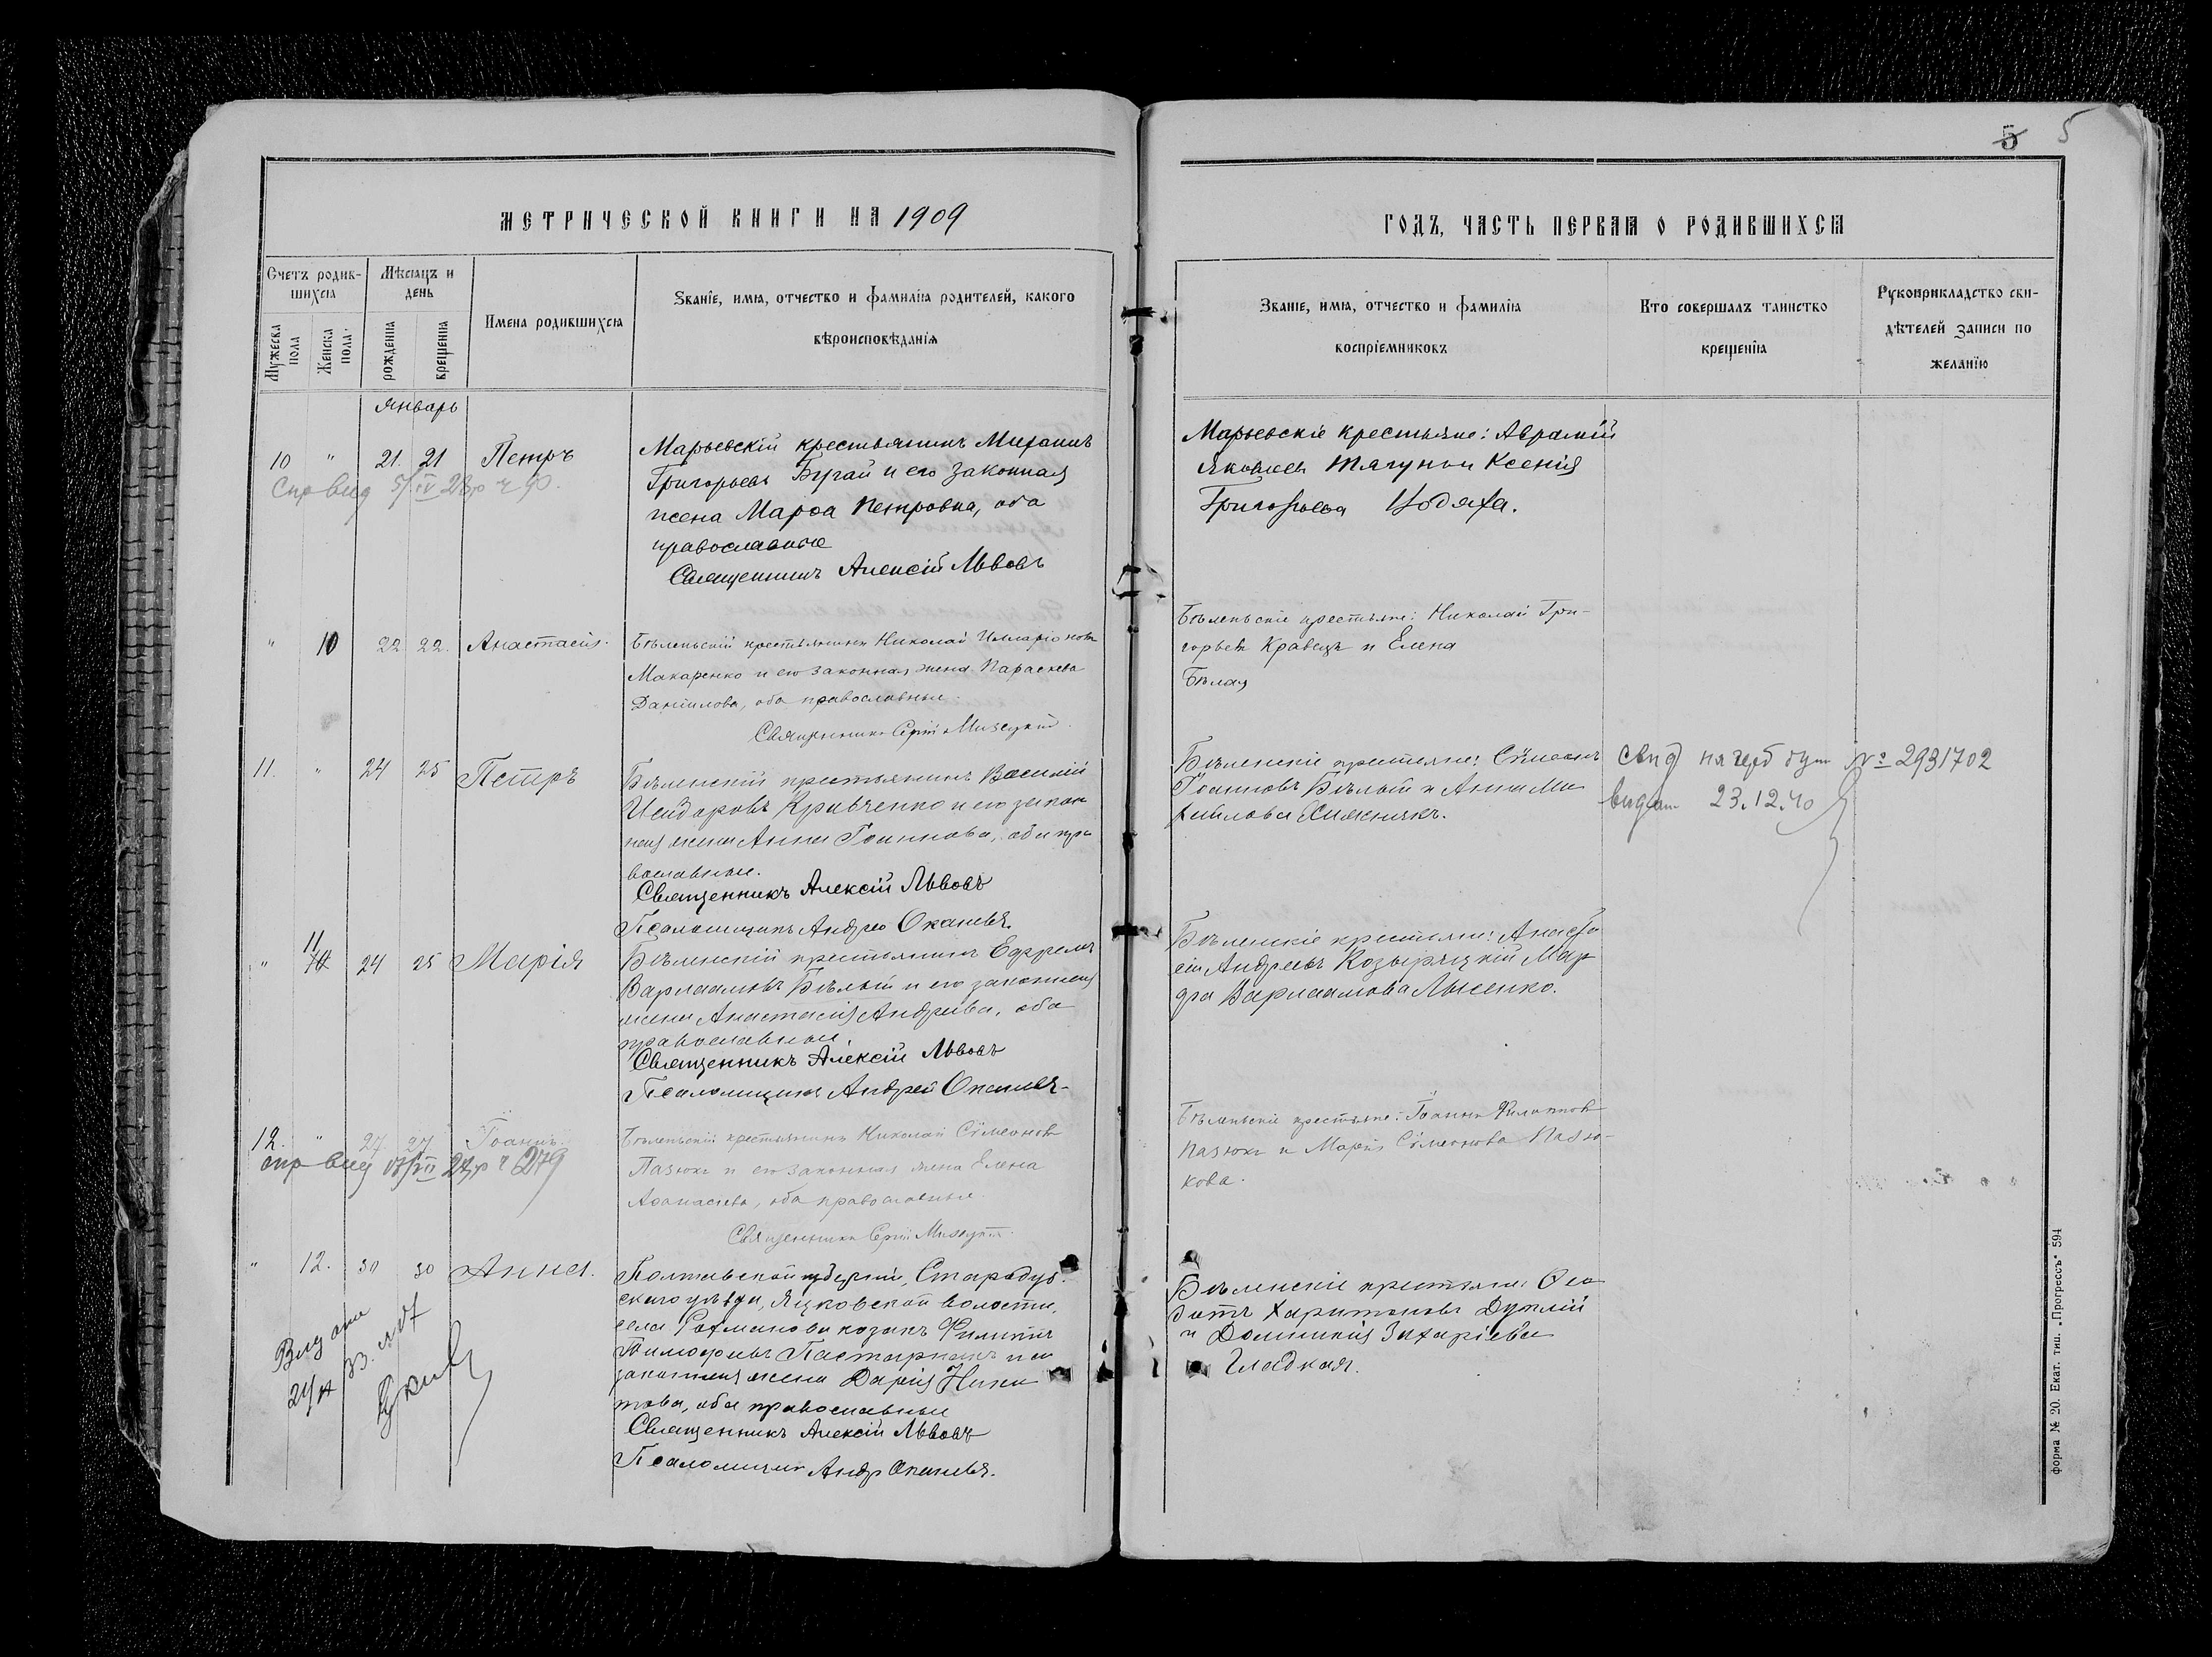 5 5
МЕТРИЧЕСКОЙ КНИГИ НА 1909
ГОДЪ, ЧАСТЬ ПЕРВАЯ О РОДИВШИХСЯ
Счетъ родив-
шихся
Мѣсяцъ и
день
Мужеска
пола
Женска
пола.
рожденія
крещенія
Имена родившихся
Званіе, имя, отчество и фамилія родителей, какого
вѣроисповѣданія
Званіе, имя, отчество и фамилія
воспріемниковъ
Кто совершалъ таинство
крещенія
Рукоприкладство сви-
дѣтелей записи по
желанію
Январь
10 " 21. 21 Петръ
Марьевскій крестьянинъ Михаилъ
Григорьевъ Бугай и его законная
жена Марѳа Петровна, оба
православные
Священникъ Алексій Львовъ
Марьевскіе крестьяне: Аврамій
Яковлев Тягун и Ксенія
Григорьева
" 10 22 22. Анастасія.
Бѣленьскій крестьянинъ Николай Илларіоновъ
Макаренко и его законная жена Параскева
Даніилова, оба православные.
Священникъ Сергій
Бѣленьскіе крестьяне: Николай Гри-
горьевъ Кравецъ и Елена
Бѣлая
11. " 24 25 Петръ
Бѣленскій крестьянинъ Василій
Исидоровъ Кравченко и его закон
ная жена Анна Іоаннова, оба пра
вославные.
Священникъ Алексій Львовъ
Псаломщикъ Андрей
Бѣленскіе крестьяне: Сѵмеонъ
Іоанновъ Бѣлый и Анна Ми
хайлова Хижнякъ.
свид на герб бум № 2931702
видан 23.12.40
" 11 24 25 Марія
Бѣленскій крестьянинъ Ефремъ
Варлаамовъ Бѣлый и его законная
жена Анастасія Андреева, оба
православные
Священникъ Алексій Львовъ
Псаломщикъ Андрей
Бѣленскіе крестьяне: Анаста
сій Андреевъ Козыряцкій Мар
Варлаамова Лысенко.
12. " 27 27 Іоаннъ.
279
Бѣленьскій крестьянинъ Николай Сѵмеоновъ
Пазюкъ и его законная жена Елена
Аѳанасіева, оба православные.
Священникъ Сергій
Бѣленьскіе крестьяне: Іоаннъ Филиппов
Пазюкъ и Марія Сѵмеонова Пазю-
кова.
" 12. 30 30 Анна.
Полтавской губерніи, Стародуб-
скаго уѣзда, Яцковской волости,
села Рахманова козакъ Филиппъ
Тимофеевъ и его
законная жена Дарія Ники
това, оба православные
Священникъ Алексій Львовъ
Псаломщикъ Андр
Бѣленскіе крестьяне: Ѳео
дотъ Харитоновъ Дуплій
и Домникія Захаріева
Гладкая.
форма № 20. Екат. тип. „Прогрессъ“ 594